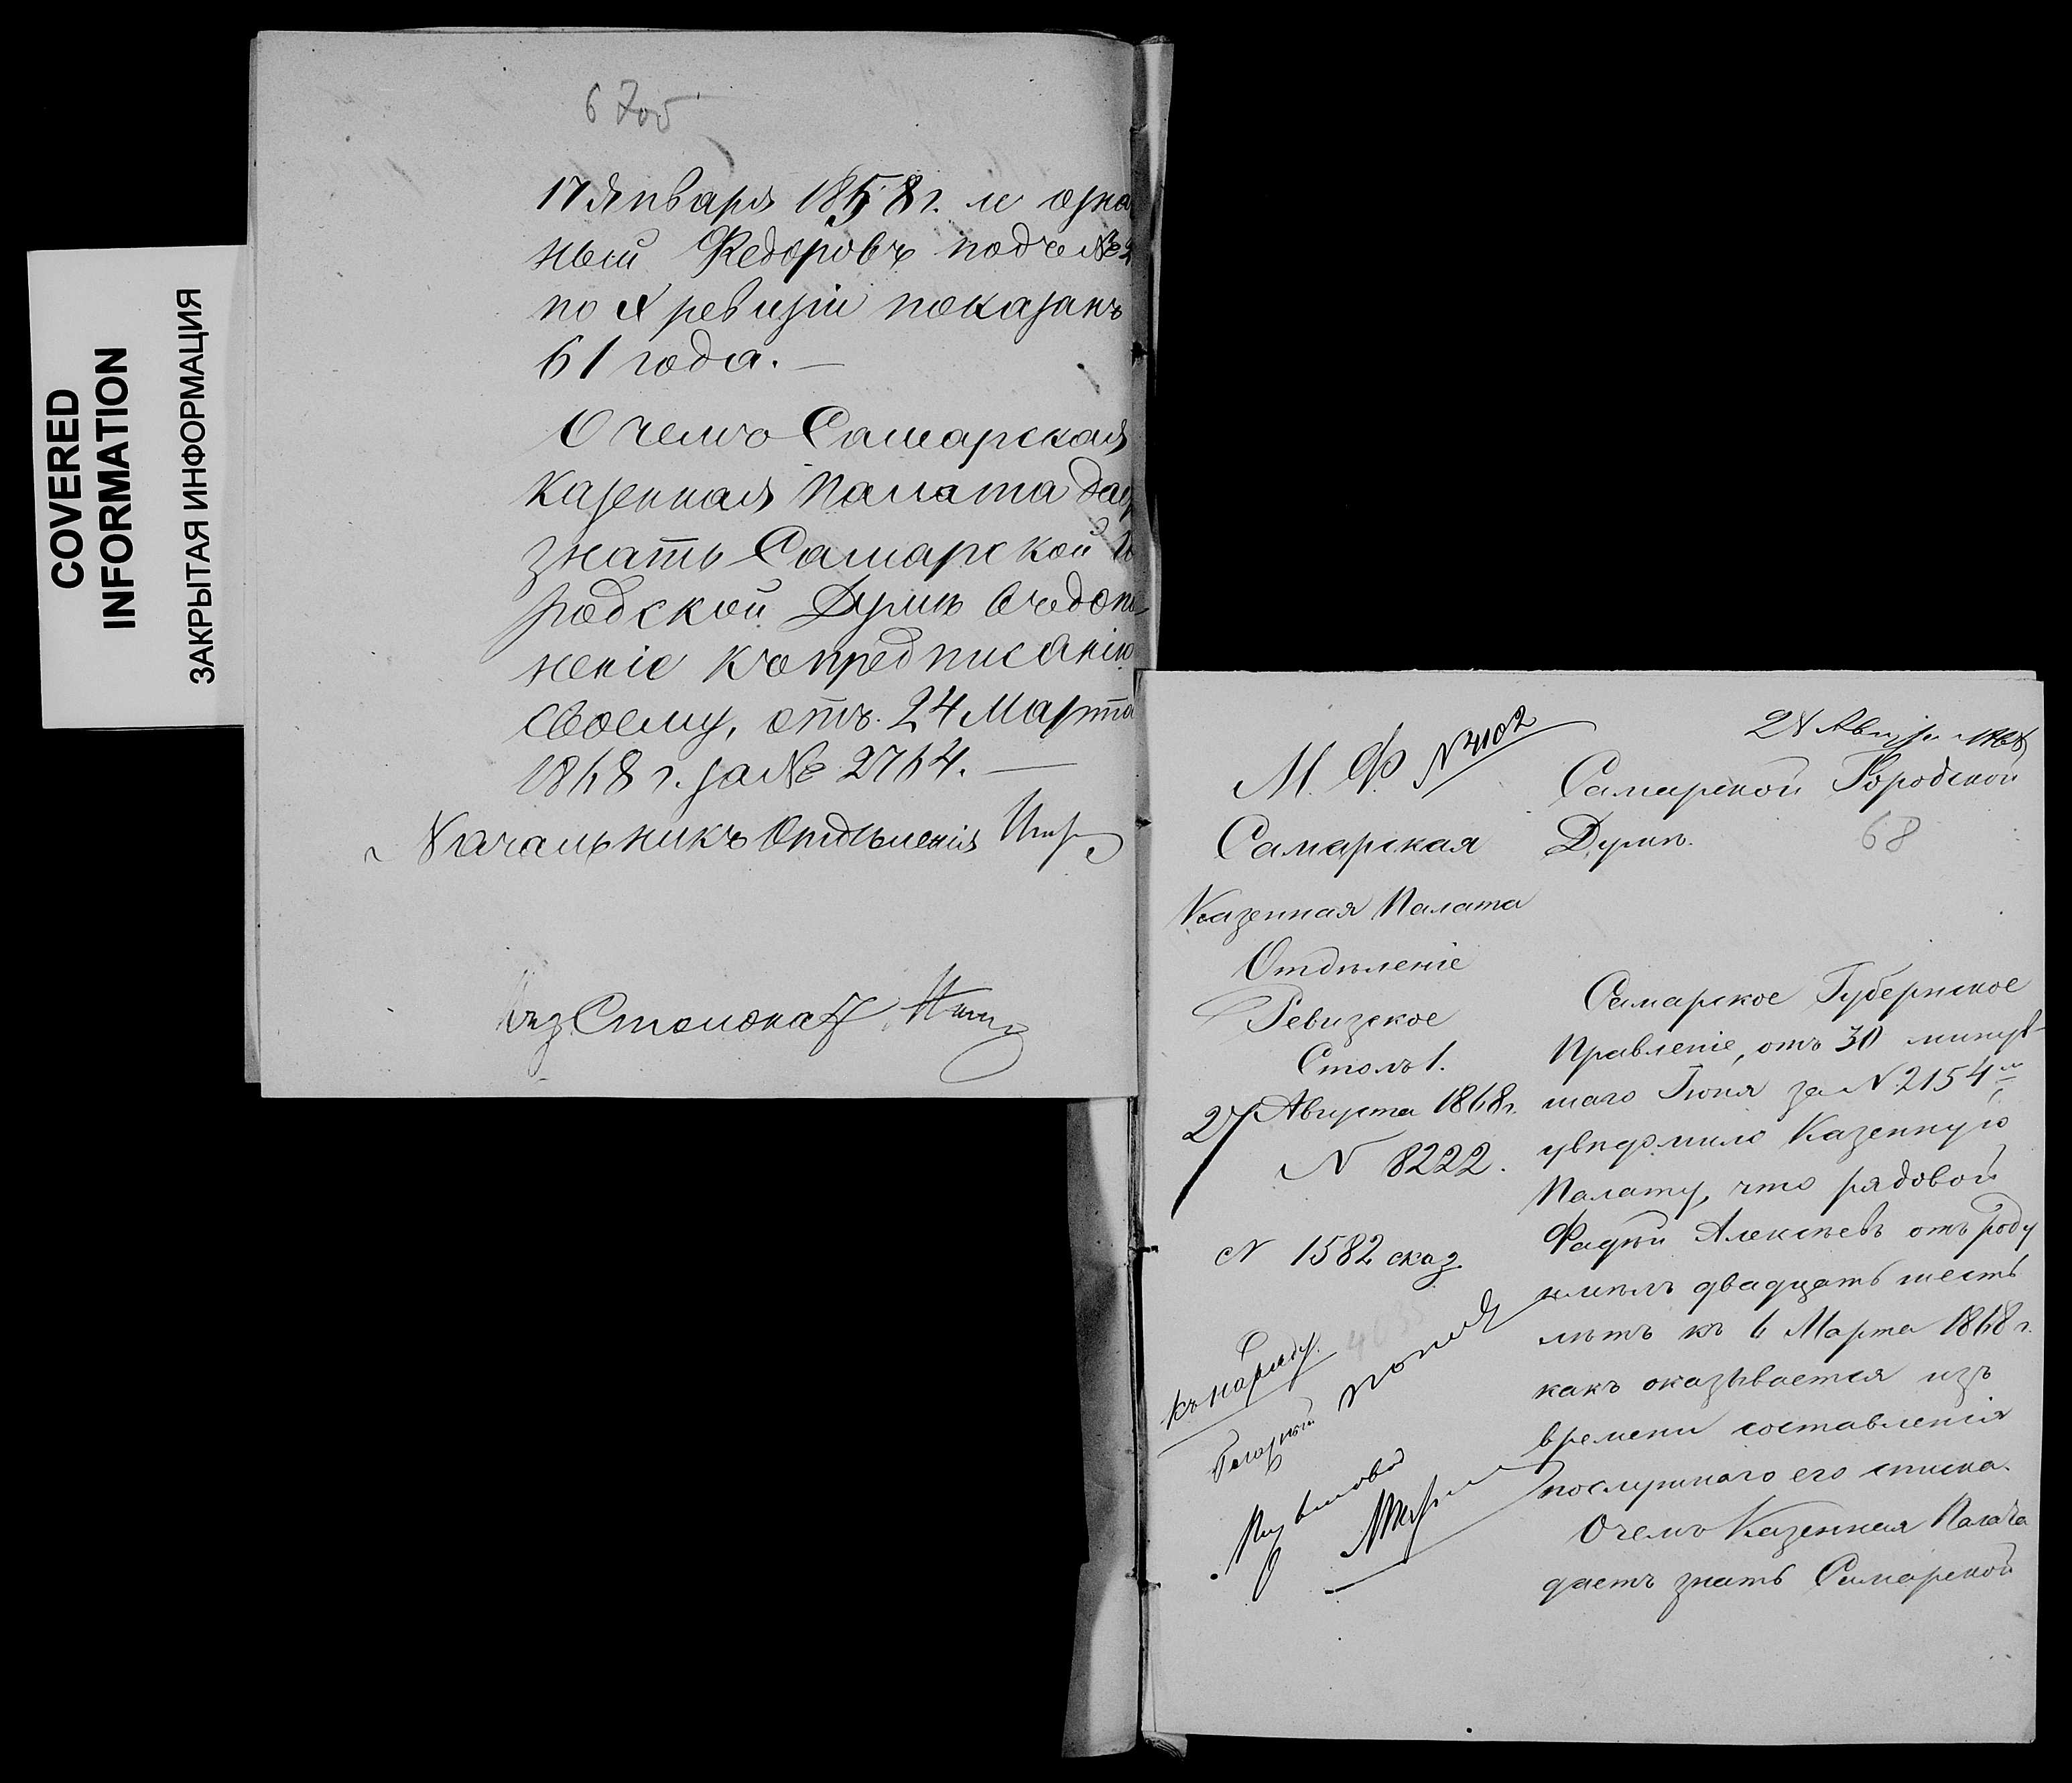 COVERED
INFORMATION
ЗАКРЫТАЯ ИНФОРМАЦИЯ
67об
17 Января 1858 г.
ный Федоровъ подъ №
по X ревизіи показанъ
61 года. —
О чемъ Самарская
Казенная Палата
знать Самарской
родской Думѣ въ допо
неніе къ предписанію
своему, отъ 24 Марта
1868 г. за № 2764. —
Начальникъ Отдѣленія
Столонач
М. Ф. N 4102
Самарская
Казенная Палата
Отдѣленіе
Ревизское
Столъ 1.
27 Августа 1868 г.
N 8222.
N 1582 сказ.
къ наряду
28 Августа 1868
Самарской Городской
Думѣ.
68
Самарское Губернское
Правленіе, отъ 30 минув-
шаго Іюня за N 2154
увѣдомило Казенную
Палату, что рядовой
Фадѣй Алексѣевъ отъ роду
имѣлъ двадцать шесть
лѣтъ къ 6 Марта 1868 г.
какъ оказывается изъ
времени составленія
послужнаго его списка.
О чемъ Казенная Палата
даетъ знать Самарской